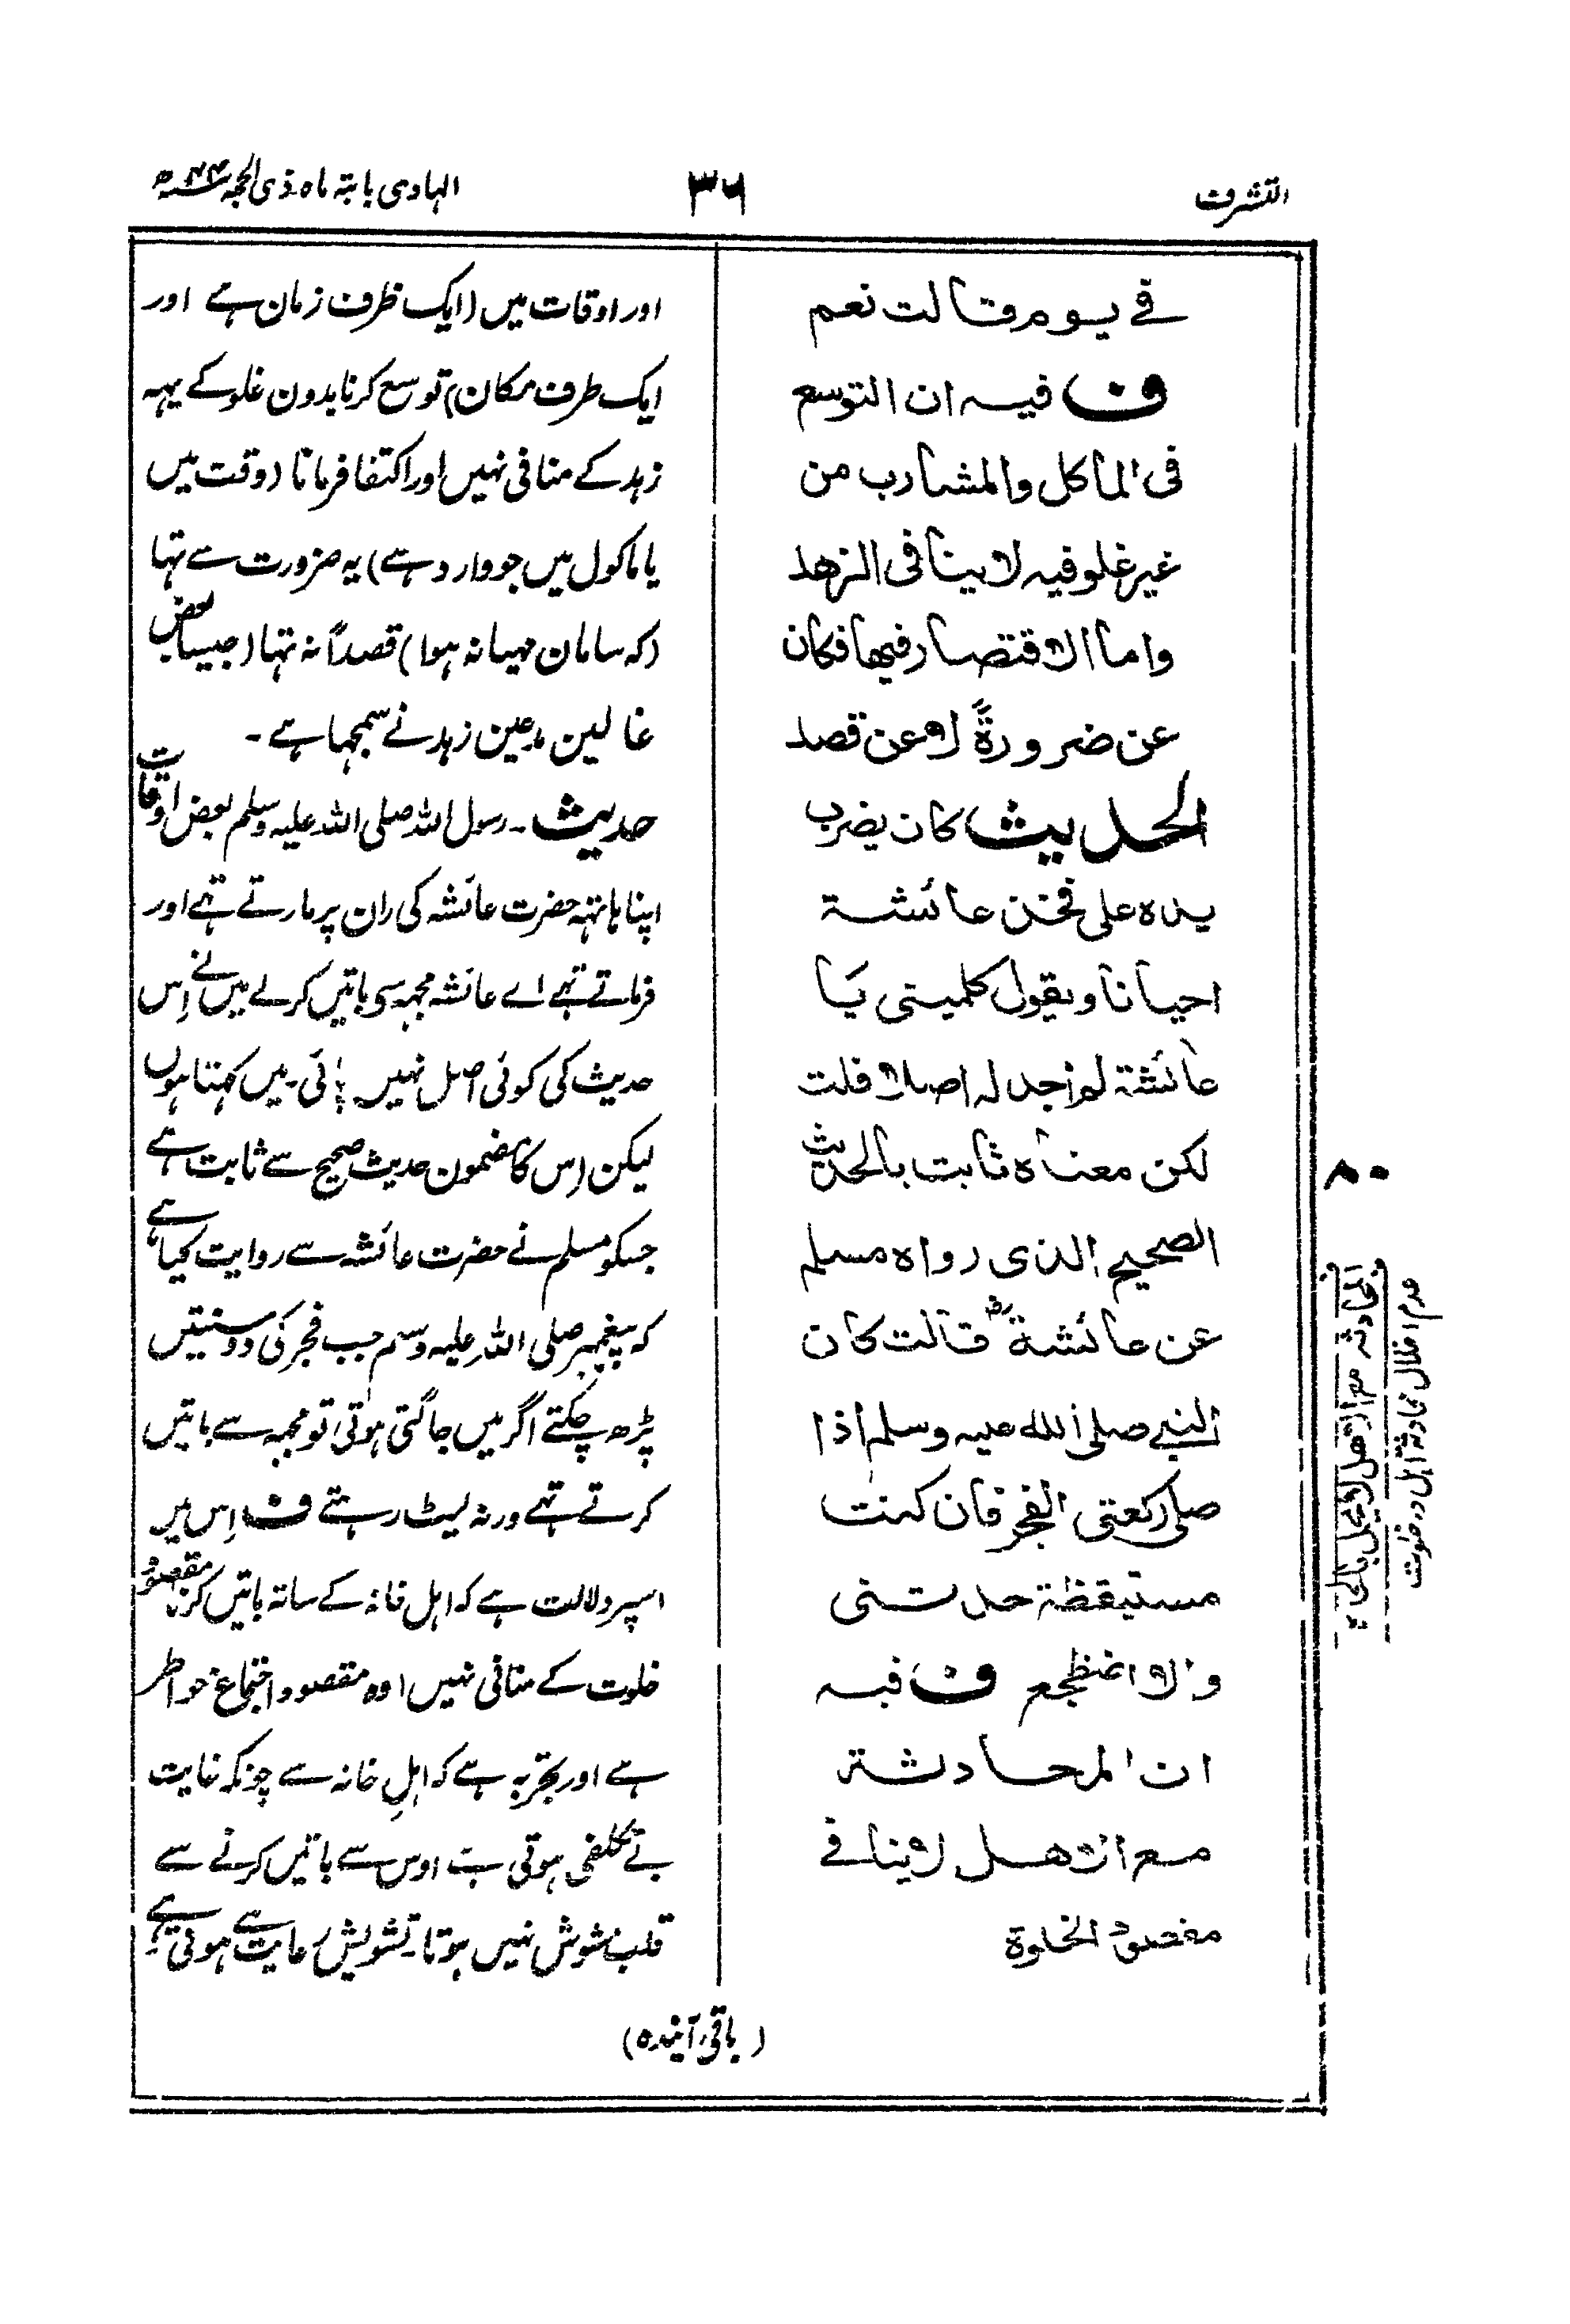 التشرف
۳۶
الہادی بابتہ ماہ ذی الحجہ ۴۴ھ
فے یوم قالت نعم
ف فیہ ان التوسع
فی المآکل والمشارب من
غیر غلو فیہ لا ینافی الزهد
واما الاقتصار فیها فکان
عن ضرورۃً لا عن قصد
الحدیث کان یضرب
یدہ علی فخذ عائشۃ
احیانا ویقول کلمینی یا
عائشۃ لم اجد لہ اصلا قلت
لکن معناہ ثابت بالحدیث
الصحیح الذی رواہ مسلم
عن عائشۃ رض قالت کان
النبے صلی الله علیہ وسلم اذا
صلی رکعتی الفجر فان کنت
مستیقظۃ حدثنی
والا اضطجع ف فیہ
ان المحادثۃ
مع الاهل لا ینافے
مقصود الخلوۃ
اور اوقات میں (ایک ظرف زمان ہے اور
ایک ظرف مکان) توسع کرنا بدون غلو کے یہہ
زہد کے منافی نہیں اور اکتفا فرمانا (وقت میں
یا ماکول میں جو وارد ہے) یہ ضرورت سے تہا
(کہ سامان مہیا نہ ہوا) قصداً نہ تہا (جیسا بعض
غالین مدعین زہد نے سمجہا ہے ۔
حدیث ۔ رسول اللہ صلی اللہ علیہ وسلم بعض اوقات
اپنا ہاتہہ حضرت عائشہ کی ران پر مارتے تہے اور
فرماتے تہے اے عائشہ مجہہ سی باتیں کر لے میں نے اِس
حدیث کی کوئی اصل نہیں پائی ۔ میں کہتا ہوں
لیکن اِس کا مضمون حدیث صحیح سے ثابت ہے
جسکو مسلم نے حضرت عائشہ سے روایت کیا ہے
کہ پیغمبر صلی اللہ علیہ وسلم جب فجر کی دو سنتیں
پڑھ چکتے اگر میں جاگتی ہوتی تو مجہہ سے باتیں
کرتے تہے ورنہ لیٹ رہتے ف اِس میں
اسپر دلالت ہے کہ اہل خانہ کے ساتہ باتیں کرنا مقصود
خلوت کے منافی نہیں اوہ مقصود اجتماع خواطر
ہے اور تجربہ ہے کہ اہلِ خانہ سے چونکہ غایت
بے تکلفی ہوتی ہے اوس سے باتیں کرنے سے
قلب مشوش نہیں ہوتا ۔ تشویش رعایت سے ہوتی ہے
(باقی آیندہ)
۸۰
المحادثہ مع الاهل لا یخل بالخلوۃ
عدم اخلال محادثہ اہل در خلوت